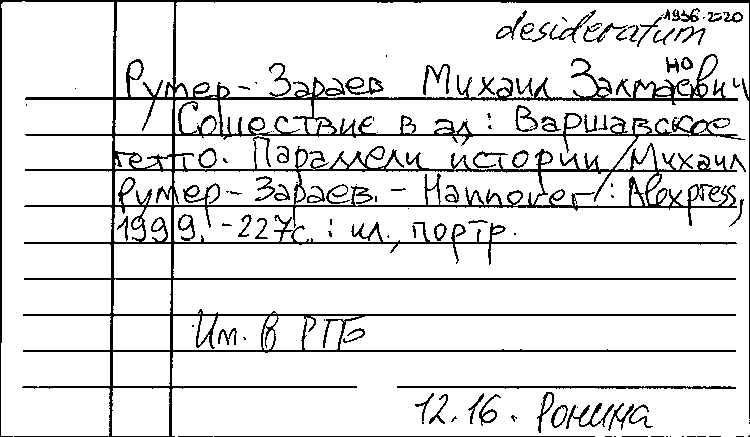 1936-2020
desideratum
Румер-Зараев Михаил Залманович
Сошествие в ад: Варшавское
гетто. Параллели истории / Михаил
Румер-Зараев. - Hannover: Alexpress,
1999. - 227с.: ил., портр.
Им. в РПБ
12.16. Ронина